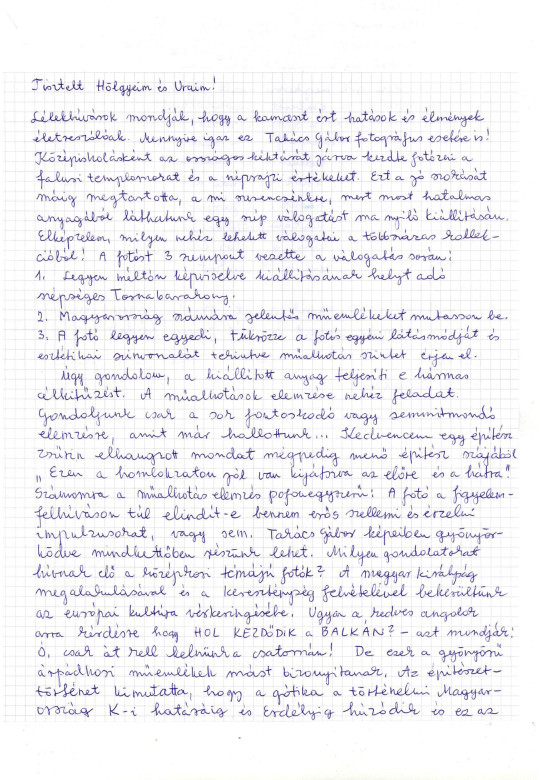 Tisztelt Hölgyeim és Uraim!
Lélekbúvárok mondják, hogy a kamaszt ért hatások és élmények
életreszólóak. Mennyire igaz ez Takács Gábor fotográfus esetére is!
Középiskolásként az országos kéktúrát járva kezdte fotózni a
falusi templomokat és a néprajzi értékeket. Ezt a jó szokását
máig megtartotta, a mi szerencsénkre, mert most hatalmas
anyagából láthatunk egy szép válogatást ma nyíló kiállításán.
Elképzelem, milyen nehéz lehetett válogatni a többszázas kollek-
cióból! A fotóst 3 szempont vezette a válogatás során:
1. Legyen méltón képviselve kiállításának helyt adó
szépséges Tornabarakony.
2. Magyarország számára jelentős műemlékeket mutasson be.
3. A fotó legyen egyedi, tükrözze a fotós egyéni látásmódját és
esztétikai színvonalát tekintve műalkotás szintet érjen el.
Úgy gondolom, a kiállított anyag teljesíti e hármas
célkitűzést. A műalkotások elemzése nehéz feladat.
Gondoljunk csak a sok fontoskodó vagy semmitmondó
elemzésre, amit már hallottunk... Kedvencem egy építész
zsűrin elhangzott mondat mégpedig menő építész szájából
„Ezen a homlokzaton jól van kijátszva az előre és a hátra"
Számomra a műalkotás elemzés pofonegyszerű: A fotó a figyelem-
felhíváson túl elindít-e bennem erős szellemi és érzelmi
impulzusokat, vagy sem. Takács Gábor képeiben gyönyör-
ködve mindkettőben részünk lehet. Milyen gondolatokat
hívnak elő a középkori témájú fotók? A magyar királyság
megalakulásával és a kereszténység felvételével bekerültünk
az európai kultúra vérkeringésébe. Ugyan a kedves angolok
arra kérdésre hogy HOL KEZDŐDIK a BALKÁN? – azt mondják:
Ó, csak át kell kelnünk a csatornán! De ezek a gyönyörű
árpádkori műemlékek mást bizonyítanak. Az építészet-
történet kimutatta, hogy a gótika a történelmi Magyar-
ország K-i határáig és Erdélyig húzódik és ez az